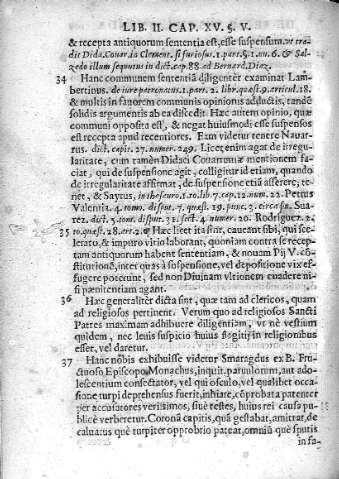 LIB. II. CAP. XV. §. V.
& recepta antiquorum sententia est, esse suspensum. vt tradit
Dida. Couar. in Clement. si furiosus. 1. part. §. 1. nu. 6. & Salzedo
illum sequutus in dict. cap. 88. ad Bernard. Diaz.
34 Hanc communem sententiā diligentèr examinat Lambertinus.
de iure patronatus. 1. part. 2. lib. quæst. 9. articul. 18.
& multis in fauorem communis opinionis adductis, tandē
solidis argumentis ab ea discedit. Hæc autem opinio, quæ
communi opposita est, & negat huiusmodi esse suspensos
est recepta apud recentiores. Eam videtur tenere Nauarrus.
dict. capit. 27. numer. 249. Licet enim agat de irregularitate,
cum tamèn Didaci Couarruuiæ mentionem faciat,
qui de suspensione agit, colligitur id etiam, quando
de irregularitate affirmat, de suspensione etiā asserere, tenet,
& Sayrus, in thesauro. 1. to. lib. 7. cap. 12. num. 22. Petrus
Valentia. 4. tomo. disput. 7. quæst. 19. punc. 2. circa fin. Suarez.
dict. 5. tom. disput. 31. sect. 4. numer. 20. Rodriguez. 2.
35 to. quæst. 28. art. 2. Hæc licet ita sint, caueant sibi, qui scelerato,
& impuro vitio laborant, quoniam contra se receptam
antiquorum habent sententiam, & nouam Pij V. cōstitutionē,
inter quas à suspensione, vel depositione vix effugere
poterunt, sed non Diuinam vltionem euadere nisi
pænitentiam agant.
36 Hæc generalitèr dicta sint, quæ tam ad clericos, quam
ad religiosos pertinent. Verum quo ad religiosos Sancti
Patres maximam adhibuere diligentiam, vt nè vestium
quidem, nec leuis suspicio huius flagitij in religionibus
esset, vel daretur.
37 Hanc nobis exhibuisse videtur Smaragdus ex B. Fructuoso
Episcopo. Monachus, inquit, paruulorum, aut adolescentium
consectator, vel qui osculo, vel qualibet occasione
turpi depræhensus fuerit, inhiare, cōprobata patenter
per accusatores verissimos, siuè testes, huius rei causa publicè
verberetur. Coronā capitis, quā gestabat, amittat, decaluatus
què turpiter opprobrio pateat, omniū què sputis
in fa-